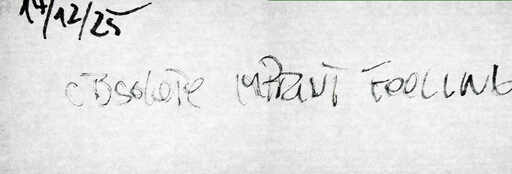 14/12/25
OBSOLETE IMPLANT TOOLING